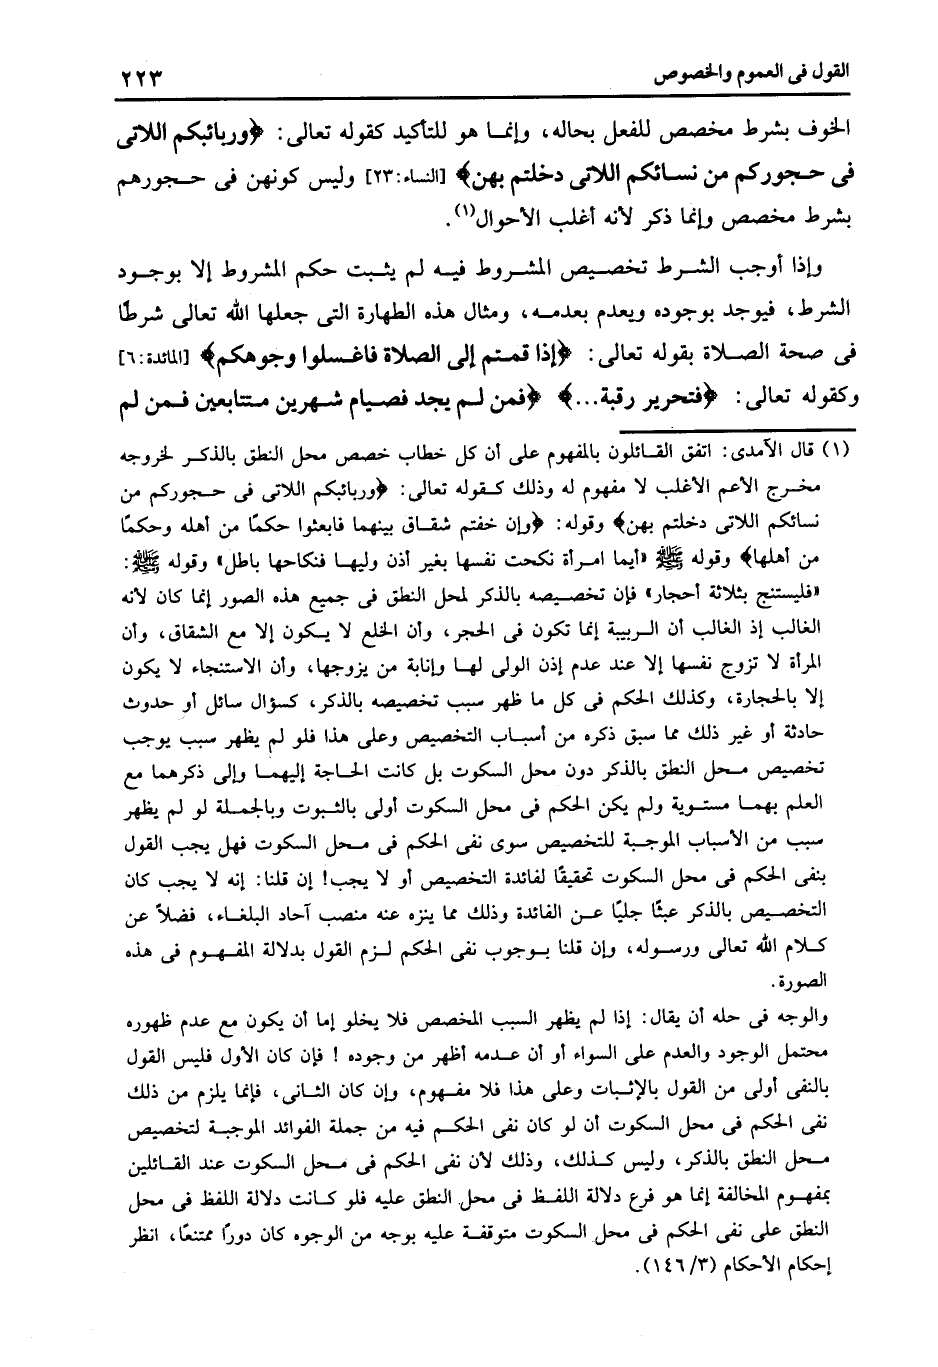 القول فى العموم والخصوص ٢٢٣
الخوف بشرط مخصص للفعل بحاله، وإنما هو للتأكيد كقوله تعالى: ﴿وربائبكم اللاتى
فى حجوركم من نسائكم اللاتى دخلتم بهن﴾ [النساء:٢٣] وليس كونهن فى حجورهم
بشرط مخصص وإنما ذكر لأنه أغلب الأحوال(١).
وإذا أوجب الشرط تخصيص المشروط فيه لم يثبت حكم المشروط إلا بوجود
الشرط، فيوجد بوجوده ويعدم بعدمه، ومثال هذه الطهارة التى جعلها الله تعالى شرطًا
فى صحة الصلاة بقوله تعالى: ﴿إذا قمتم إلى الصلاة فاغسلوا وجوهكم﴾ [المائدة:٦]
وكقوله تعالى: ﴿فتحرير رقبة...﴾ ﴿فمن لم يجد فصيام شهرين متتابعين فمن لم
(١) قال الآمدى: اتفق القائلون بالمفهوم على أن كل خطاب خصص محل النطق بالذكر لخروجه
مخرج الأعم الأغلب لا مفهوم له وذلك كقوله تعالى: ﴿وربائبكم اللاتى فى حجوركم من
نسائكم اللاتى دخلتم بهن﴾ وقوله: ﴿وإن خفتم شقاق بينهما فابعثوا حكمًا من أهله وحكمًا
من أهلها﴾ وقوله ﷺ «أيما امرأة نكحت نفسها بغير أذن وليها فنكاحها باطل» وقوله ﷺ:
«فليستنج بثلاثة أحجار» فإن تخصيصه بالذكر لمحل النطق فى جميع هذه الصور إنما كان لأنه
الغالب إذ الغالب أن الربيبة إنما تكون فى الحجر، وأن الخلع لا يكون إلا مع الشقاق، وأن
المرأة لا تزوج نفسها إلا عند عدم إذن الولى لها وإنابة من يزوجها، وأن الاستنجاء لا يكون
إلا بالحجارة، وكذلك الحكم فى كل ما ظهر سبب تخصيصه بالذكر، كسؤال سائل أو حدوث
حادثة أو غير ذلك مما سبق ذكره من أسباب التخصيص وعلى هذا فلو لم يظهر سبب يوجب
تخصيص محل النطق بالذكر دون محل السكوت بل كانت الحاجة إليهما وإلى ذكرهما مع
العلم بهما مستوية ولم يكن الحكم فى محل السكوت أولى بالثبوت وبالجملة لو لم يظهر
سبب من الأسباب الموجبة للتخصيص سوى نفى الحكم فى محل السكوت فهل يجب القول
بنفى الحكم فى محل السكوت تحقيقًا لفائدة التخصيص أو لا يجب! إن قلنا: إنه لا يجب كان
التخصيص بالذكر عبثًا جليًا عن الفائدة وذلك مما ينزه عنه منصب آحاد البلغاء، فضلاً عن
كلام الله تعالى ورسوله، وإن قلنا بوجوب نفى الحكم لزم القول بدلالة المفهوم فى هذه
الصورة.
والوجه فى حله أن يقال: إذا لم يظهر السبب المخصص فلا يخلو إما أن يكون مع عدم ظهوره
محتمل الوجود والعدم على السواء أو أن عدمه أظهر من وجوده ! فإن كان الأول فليس القول
بالنفى أولى من القول بالإثبات وعلى هذا فلا مفهوم، وإن كان الثانى، فإنما يلزم من ذلك
نفى الحكم فى محل السكوت أن لو كان نفى الحكم فيه من جملة الفوائد الموجبة لتخصيص
محل النطق بالذكر، وليس كذلك، وذلك لأن نفى الحكم فى محل السكوت عند القائلين
بمفهوم المخالفة إنما هو فرع دلالة اللفظ فى محل النطق عليه فلو كانت دلالة اللفظ فى محل
النطق على نفى الحكم فى محل السكوت متوقفة عليه بوجه من الوجوه كان دورًا ممتنعًا، انظر
إحكام الأحكام (١٤٦/٣).